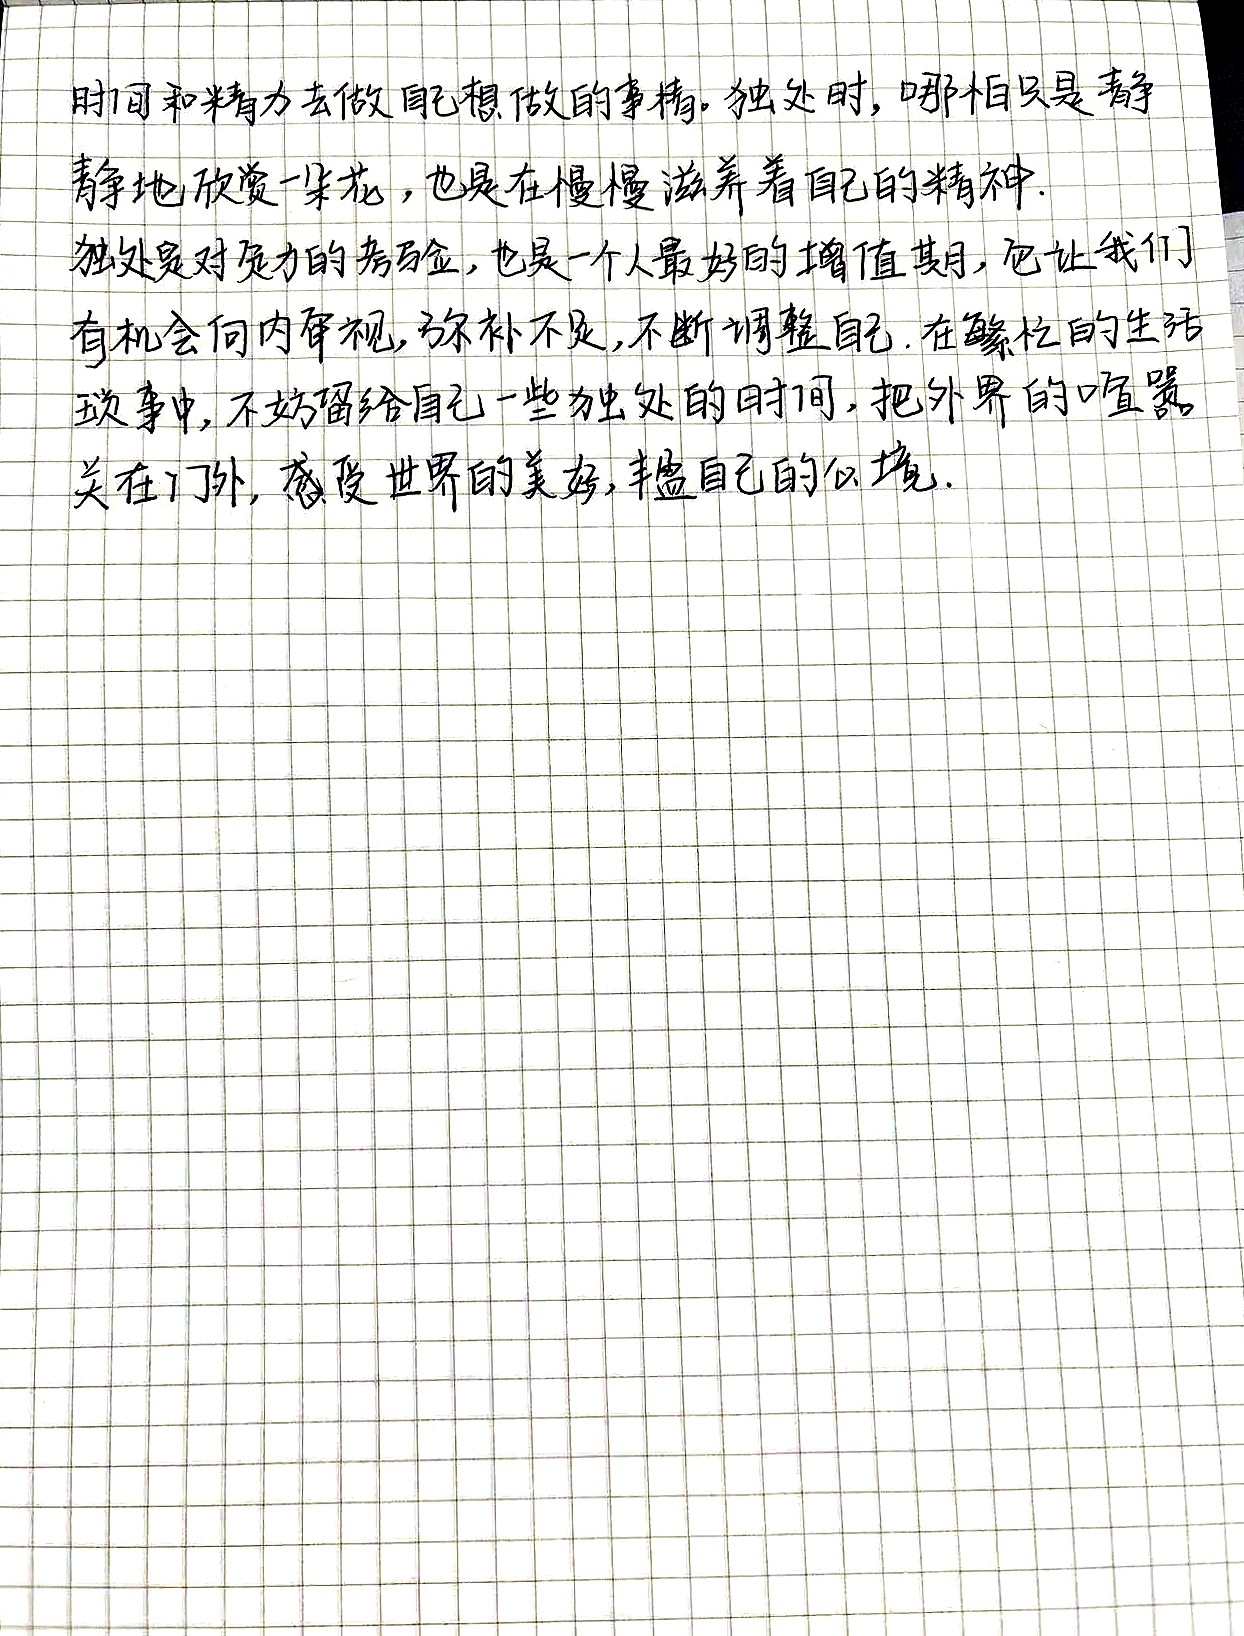 时间和精力去做自己想做的事情。独处时，哪怕只是静
静地欣赏一朵花，也是在慢慢滋养着自己的精神.
独处是对定力的考验，也是一个人最好的增值期，它让我们
有机会向内审视，弥补不足，不断调整自己.在繁忙的生活
琐事中，不妨留给自己一些独处的时间，把外界的喧嚣
关在门外，感受世界的美好，丰盈自己的心境.